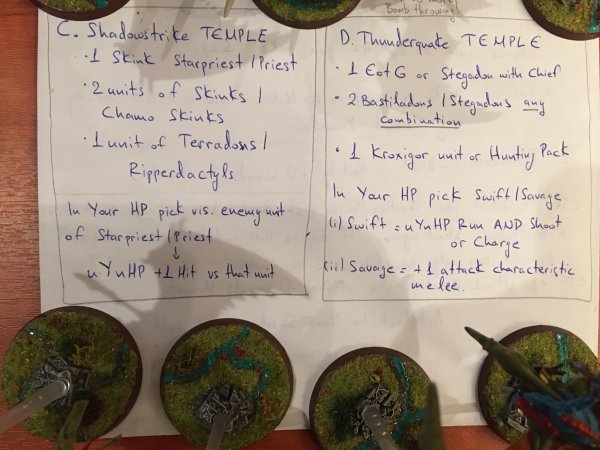 Bomb throwing!
C. Shadowstrike TEMPLE
· 1 Skink Starpriest/Priest
· 2 units of Skinks/
Chamo Skinks
· 1 unit of Terradons/
Ripperdactyls
In Your HP pick vis. enemy unit
of Starpriest/Priest
↓
uYnHP +1 Hit vs that unit
D. Thunderquake TEMPLE
· 1 EotG or Stegadon with Chief
· 2 Bastiladons/Stegadons any
combination
· 1 Kroxigor unit or Hunting Pack
In Your HP pick Swift/Savage
(i) Swift = uYnHP Run AND Shoot
or Charge
(ii) Savage = +1 attack characteristic
melee.